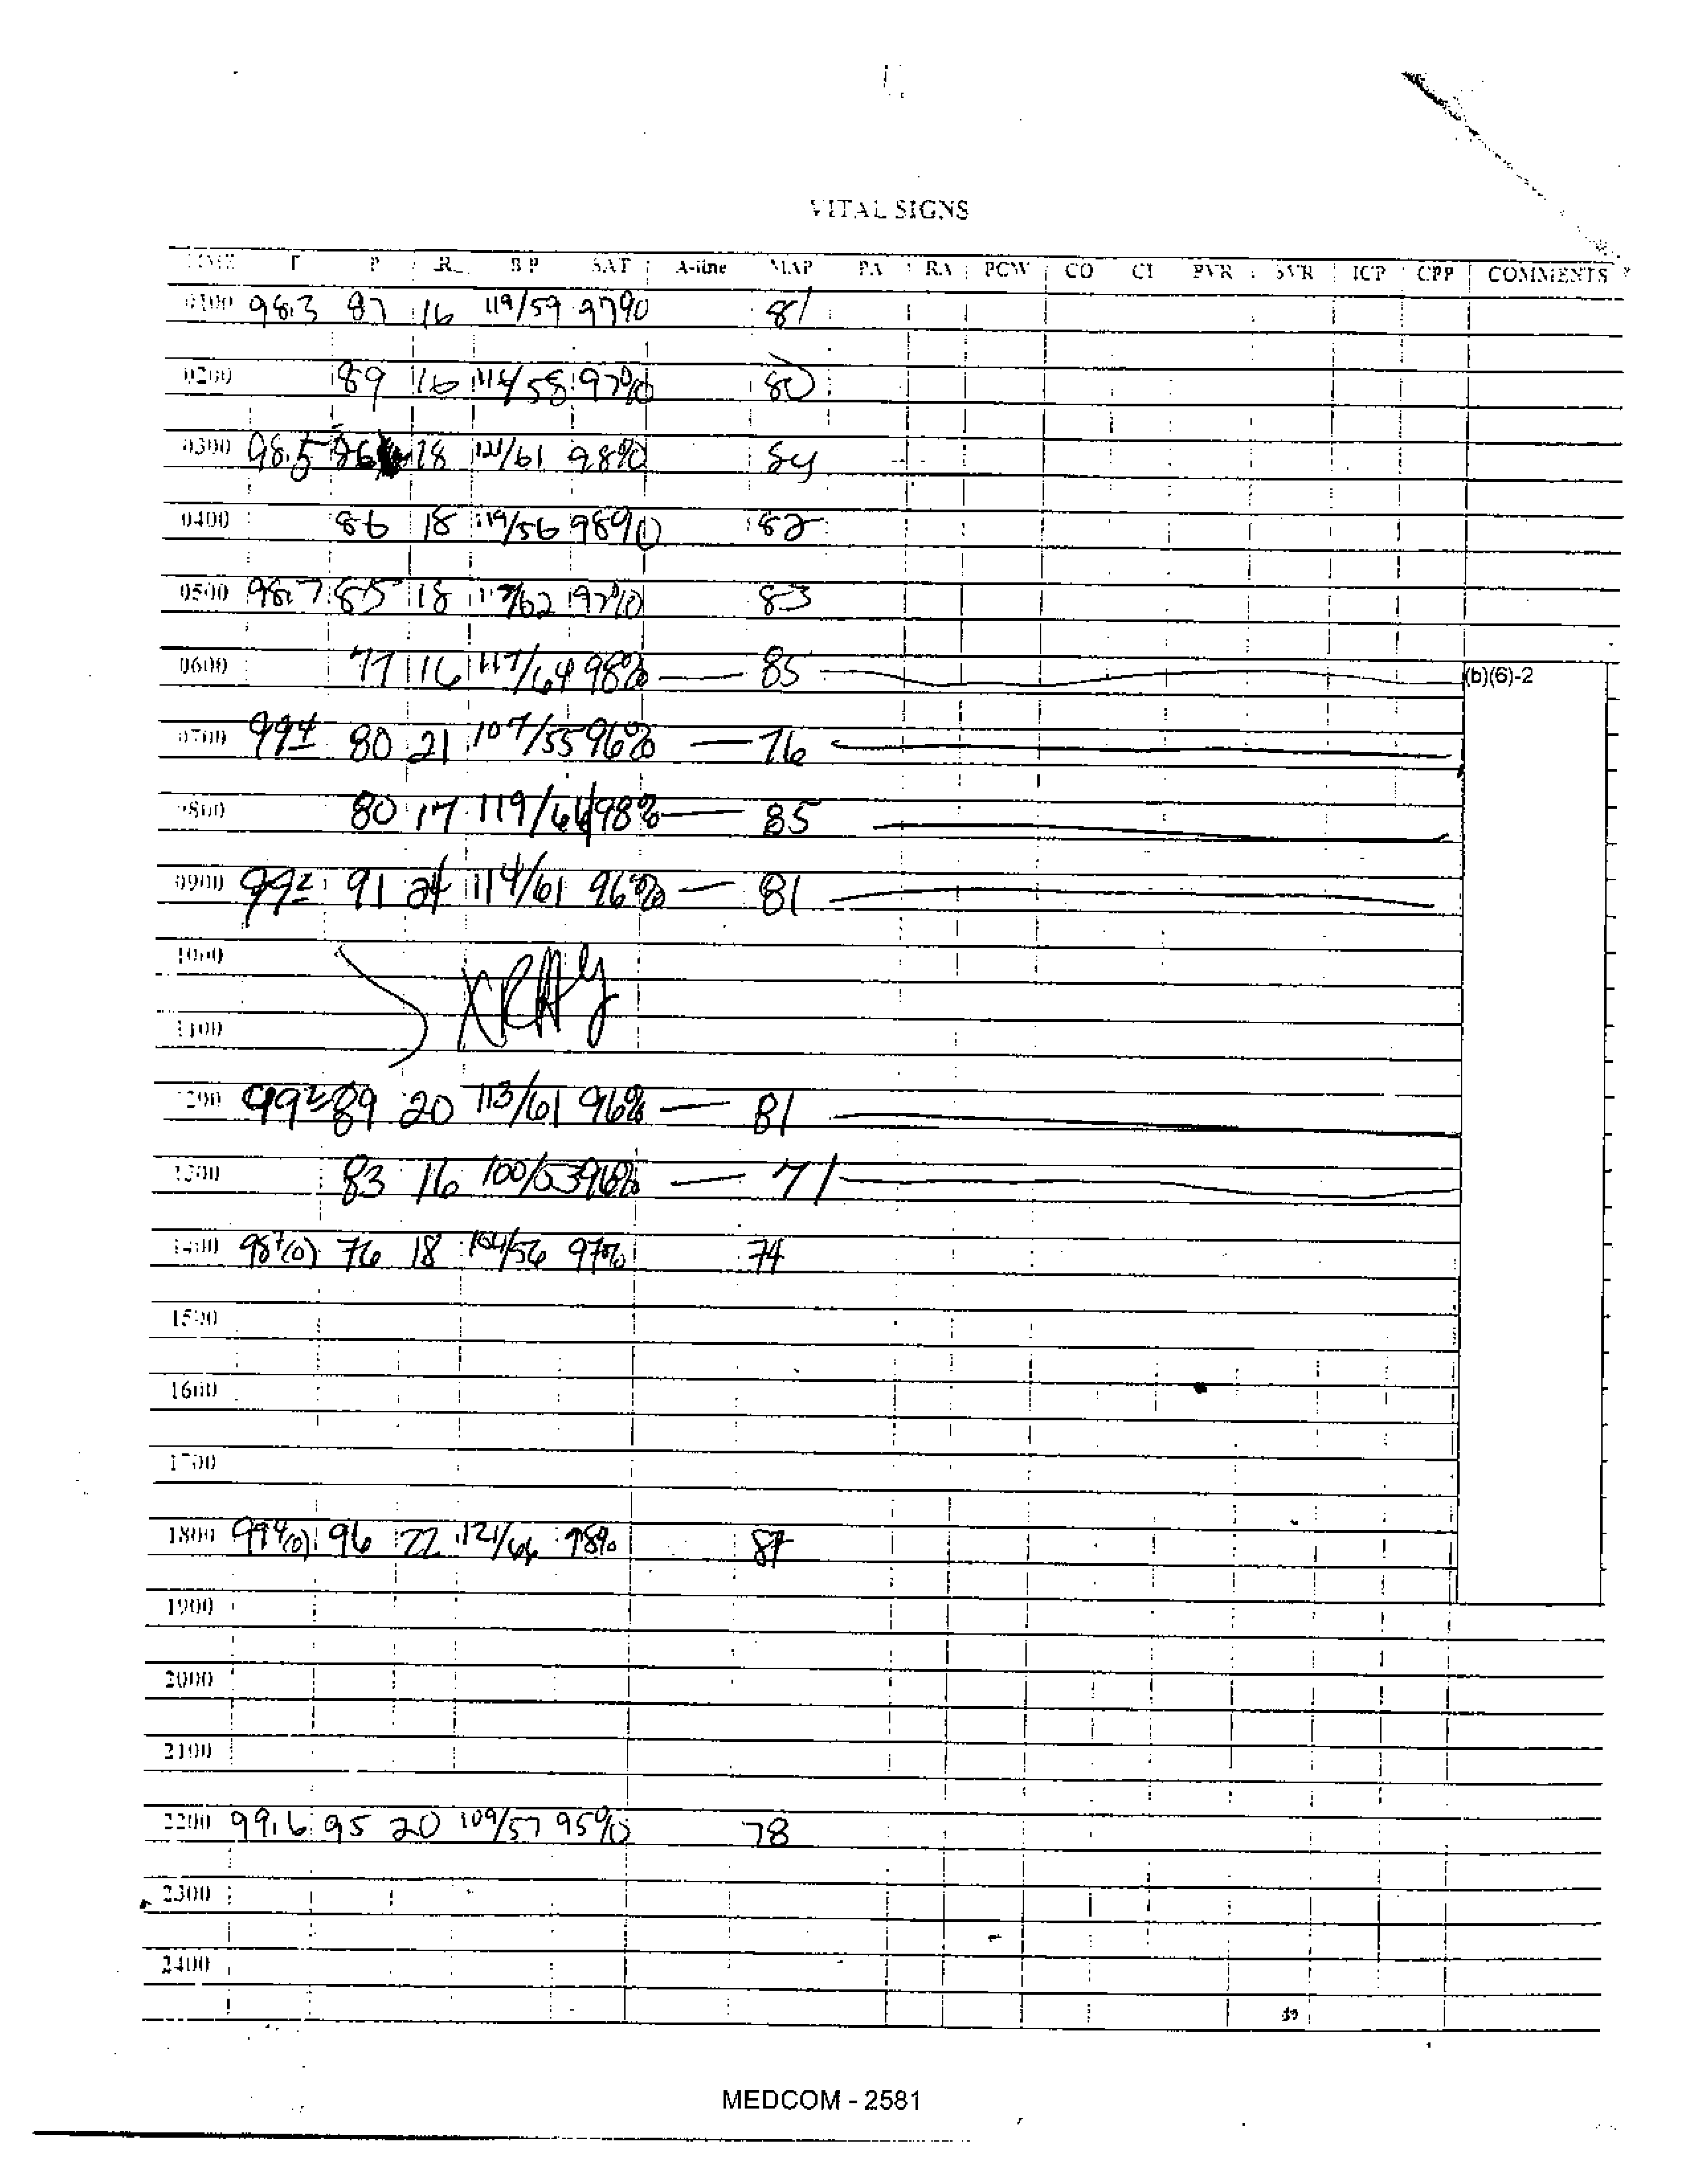 VITAL SIGNS
TIME T P R BP SAT A-line MAP PA RA PCW CO CI PVR SVR ICP CPP COMMENTS
0100 98.3 87 16 119/59 97% 81
0200 89 16 /58 97% 80
0300 98.5 86 18 121/61 98% 84
0400 86 18 119/56 98% 82
0500 98.7 85 18 /62 97% 83
0600 77 16 117/64 98% — 85 —
(b)(6)-2
0700 99⁴ 80 21 107/55 96% — 76 —
0800 80 17 119/66 98% — 85 —
0900 99² 91 24 114/61 96% — 81 —
1000
XRAY
1100
1200 99² 89 20 113/61 96% — 81 —
1300 83 16 100/53 96% — 71 —
1400 98⁷(o) 76 18 104/56 97% 74
1500
1600
1700
1800 99⁴(o) 96 22 121/66 98% 87
1900
2000
2100
2200 99.6 95 20 109/57 95% 78
2300
2400
MEDCOM - 2581